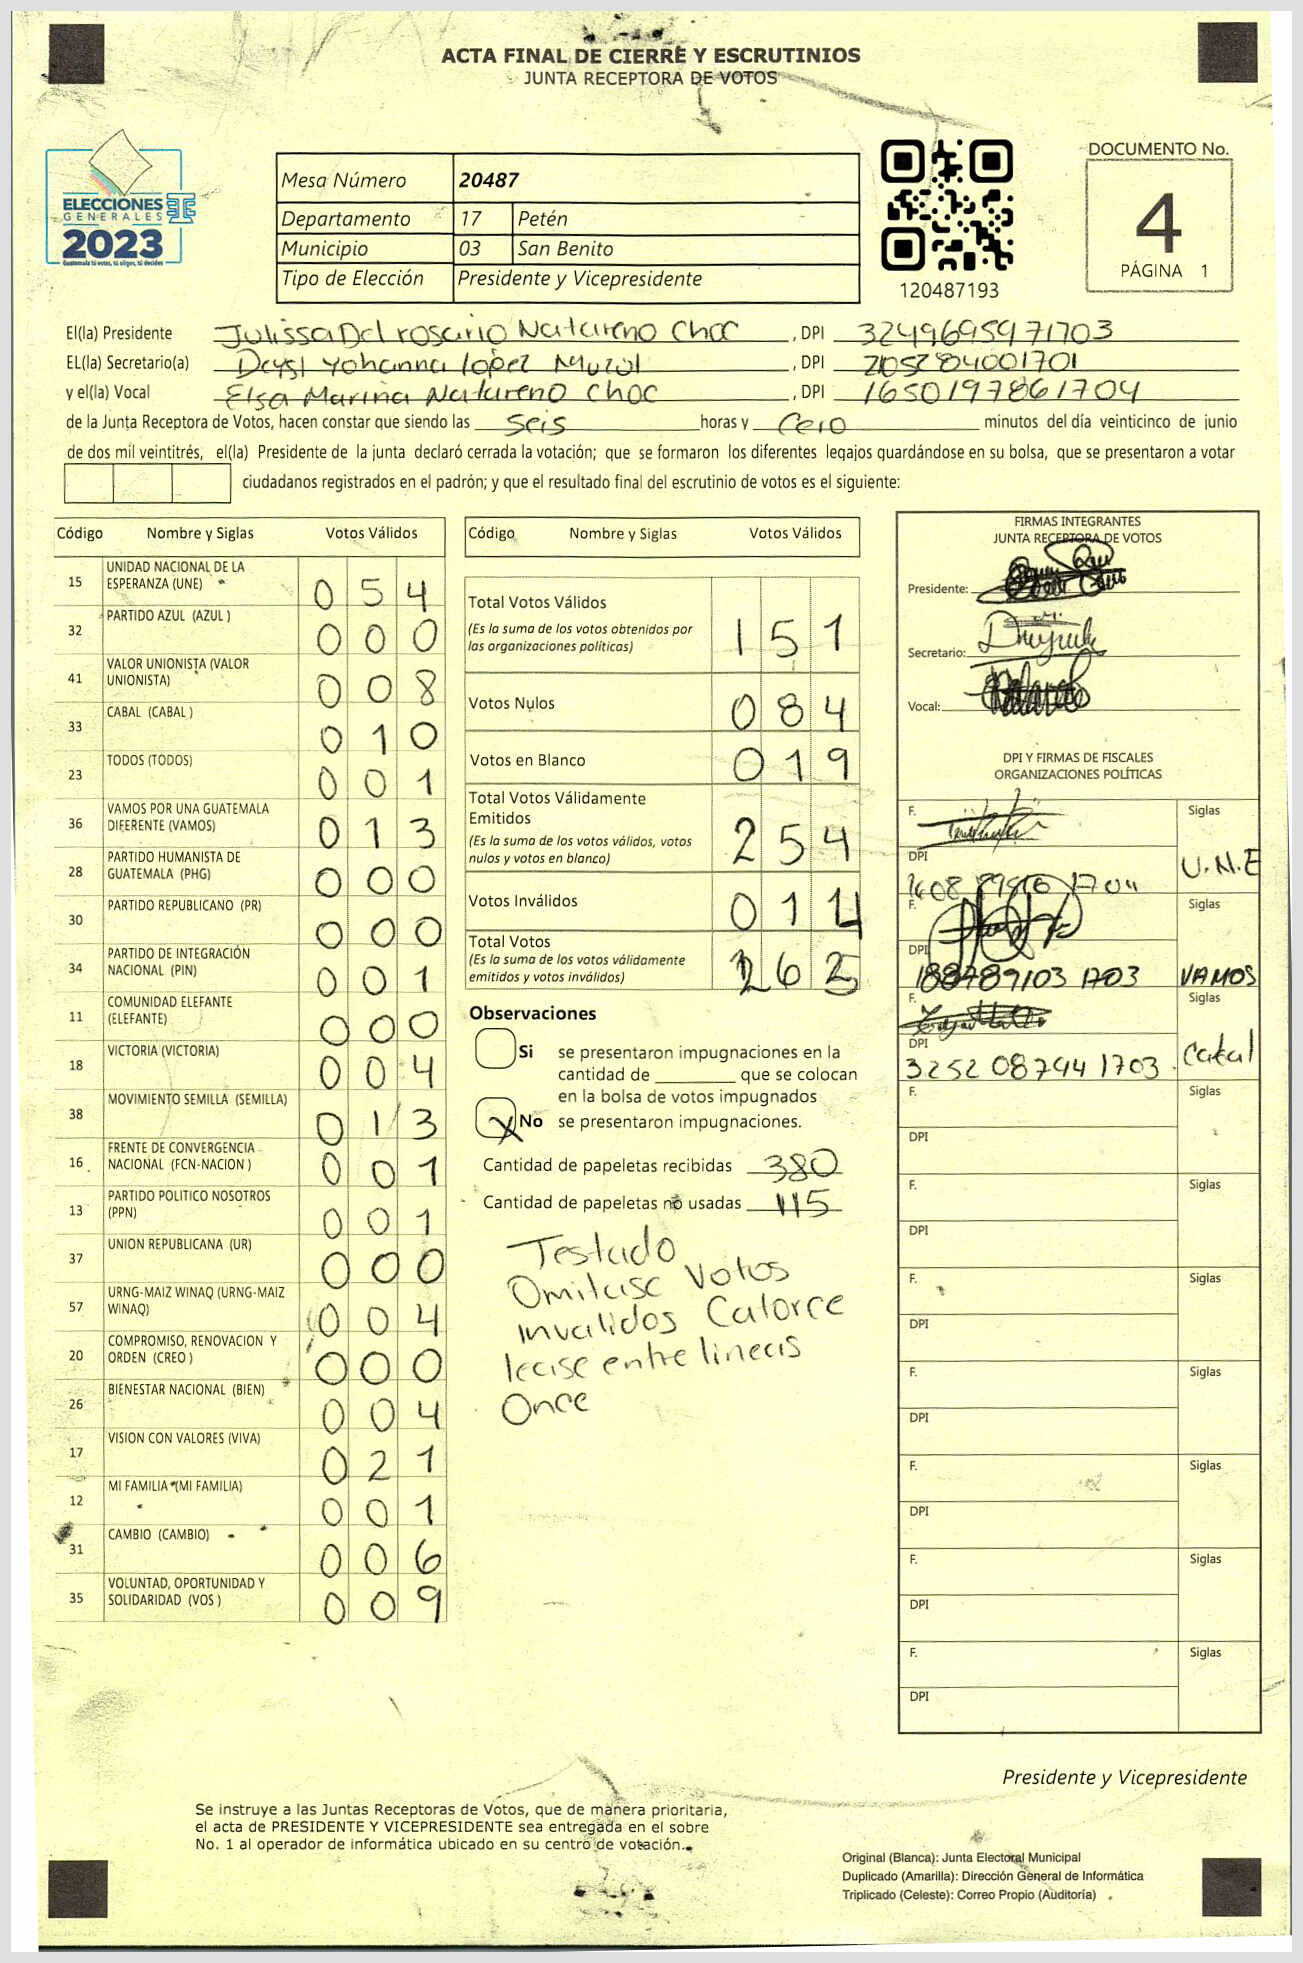 ACTA FINAL DE CIERRE Y ESCRUTINIOS
JUNTA RECEPTORA DE VOTOS
ELECCIONES
GENERALES
2023
Guatemala tú votas, tú eliges, tú decides
Mesa Número 20487
Departamento 17 Petén
Municipio 03 San Benito
Tipo de Elección Presidente y Vicepresidente
120487193
DOCUMENTO No.
4
PÁGINA 1
El(la) Presidente Julissa Del rosario Natareno Choc , DPI 3249695971703
EL(la) Secretario(a) Deysi Yohanna lopez , DPI 205284001701
y el(la) Vocal Elsa Marina Natareno Choc , DPI 1650197861704
de la Junta Receptora de Votos, hacen constar que siendo las Seis horas y Cero minutos del día veinticinco de junio
de dos mil veintitrés, el(la) Presidente de la junta declaró cerrada la votación; que se formaron los diferentes legajos guardándose en su bolsa, que se presentaron a votar
ciudadanos registrados en el padrón; y que el resultado final del escrutinio de votos es el siguiente:
Código Nombre y Siglas Votos Válidos
15 UNIDAD NACIONAL DE LA ESPERANZA (UNE) 054
32 PARTIDO AZUL (AZUL ) 000
41 VALOR UNIONISTA (VALOR UNIONISTA) 008
33 CABAL (CABAL ) 010
23 TODOS (TODOS) 001
36 VAMOS POR UNA GUATEMALA DIFERENTE (VAMOS) 013
28 PARTIDO HUMANISTA DE GUATEMALA (PHG) 000
30 PARTIDO REPUBLICANO (PR) 000
34 PARTIDO DE INTEGRACIÓN NACIONAL (PIN) 001
11 COMUNIDAD ELEFANTE (ELEFANTE) 000
18 VICTORIA (VICTORIA) 004
38 MOVIMIENTO SEMILLA (SEMILLA) 013
16 FRENTE DE CONVERGENCIA NACIONAL (FCN-NACION ) 001
13 PARTIDO POLITICO NOSOTROS (PPN) 001
37 UNION REPUBLICANA (UR) 000
57 URNG-MAIZ WINAQ (URNG-MAIZ WINAQ) 004
20 COMPROMISO, RENOVACION Y ORDEN (CREO ) 000
26 BIENESTAR NACIONAL (BIEN) 004
17 VISION CON VALORES (VIVA) 021
12 MI FAMILIA (MI FAMILIA) 001
31 CAMBIO (CAMBIO) 006
35 VOLUNTAD, OPORTUNIDAD Y SOLIDARIDAD (VOS ) 009
Código Nombre y Siglas Votos Válidos
Total Votos Válidos 151
(Es la suma de los votos obtenidos por
las organizaciones políticas)
Votos Nulos 084
Votos en Blanco 019
Total Votos Válidamente
Emitidos 254
(Es la suma de los votos válidos, votos
nulos y votos en blanco)
Votos Inválidos 01
Total Votos
(Es la suma de los votos válidamente
emitidos y votos inválidos) 26
Observaciones
Si se presentaron impugnaciones en la
cantidad de ________ que se colocan
en la bolsa de votos impugnados
X No se presentaron impugnaciones.
Cantidad de papeletas recibidas 380
Cantidad de papeletas no usadas 115
Testado
Omitase Votos
invalidos Catorce
lease entre lineas
Once
FIRMAS INTEGRANTES
JUNTA RECEPTORA DE VOTOS
Presidente:
Secretario:
Vocal:
DPI Y FIRMAS DE FISCALES
ORGANIZACIONES POLÍTICAS
F. Siglas
DPI U.N.E
F. Siglas
DPI 1703 VAMOS
F. Siglas
DPI
3252 08794 1703 Cabal
F. Siglas
DPI
F. Siglas
DPI
F. Siglas
DPI
F. Siglas
DPI
F. Siglas
DPI
F. Siglas
DPI
F. Siglas
DPI
Presidente y Vicepresidente
Se instruye a las Juntas Receptoras de Votos, que de manera prioritaria,
el acta de PRESIDENTE Y VICEPRESIDENTE sea entregada en el sobre
No. 1 al operador de informática ubicado en su centro de votación.
Original (Blanca): Junta Electoral Municipal
Duplicado (Amarilla): Dirección General de Informática
Triplicado (Celeste): Correo Propio (Auditoría)